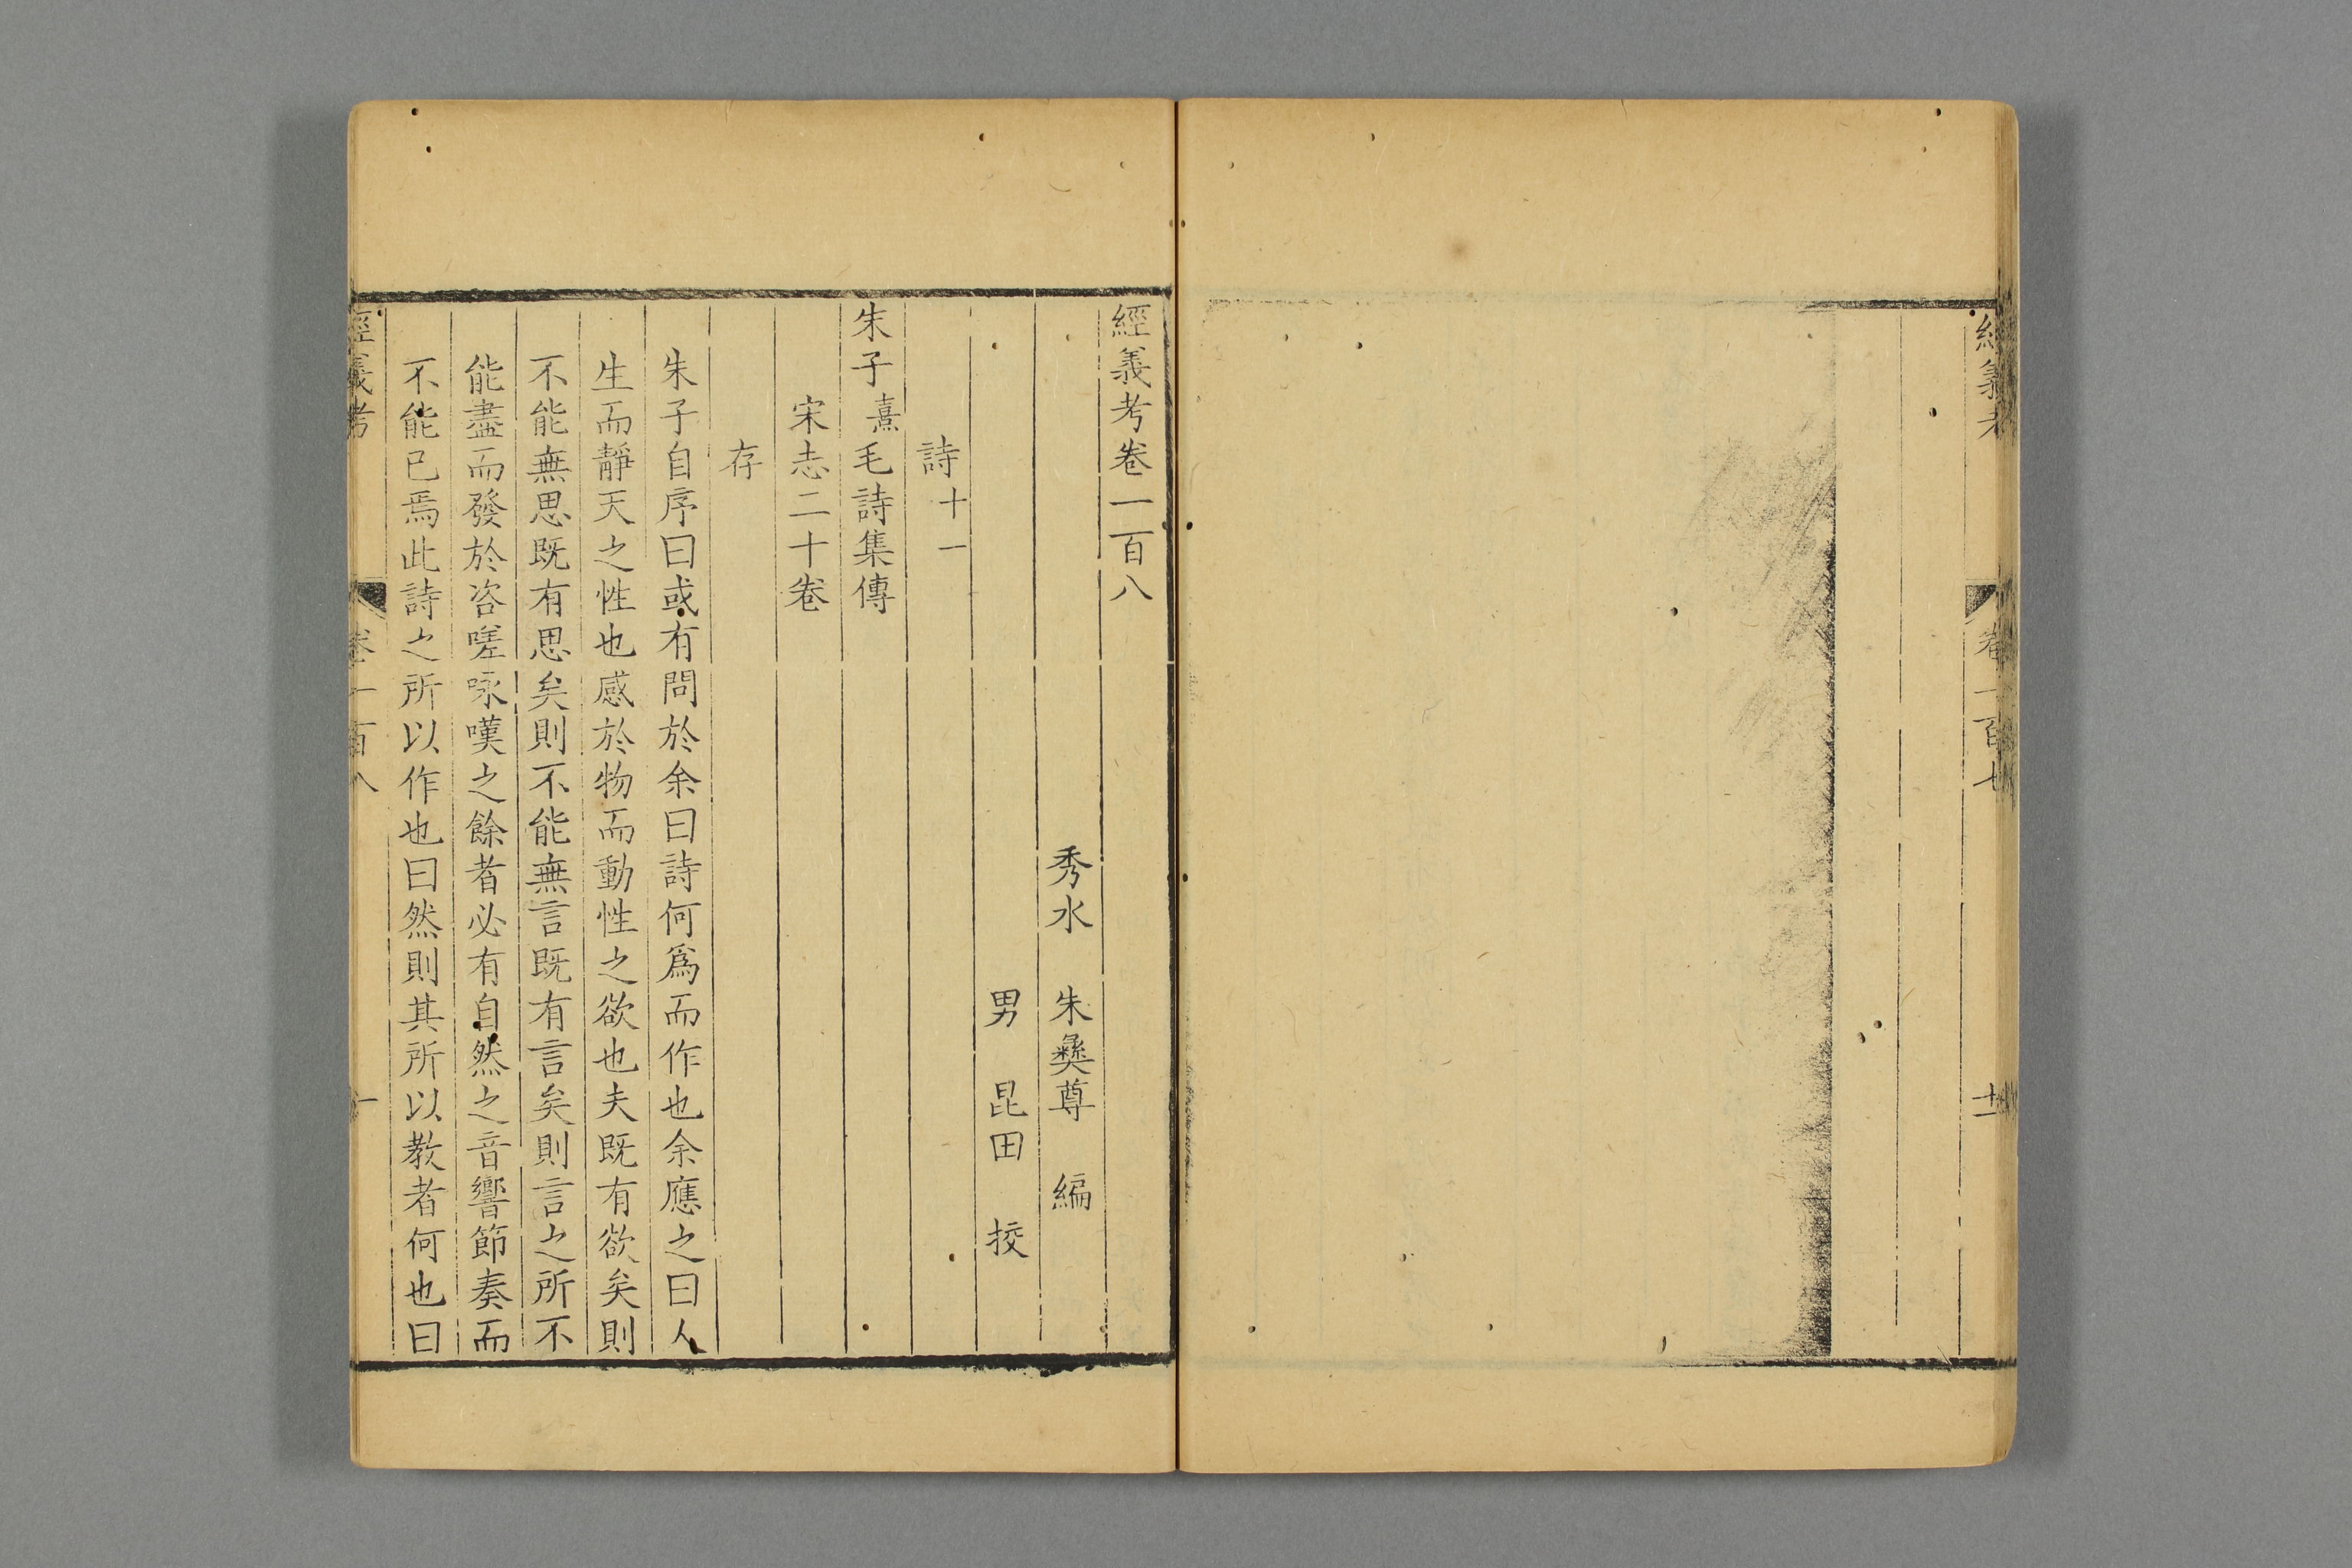 經義考
卷一百七
十二
經義考卷一百八
秀水 朱彝尊 編
男 昆田 挍
詩十一
朱子熹毛詩集傳
宋志二十卷
存
朱子自序曰或有問於余曰詩何爲而作也余應之曰人
生而靜天之性也感於物而動性之欲也夫既有欲矣則
不能無思既有思矣則不能無言既有言矣則言之所不
能盡而發於咨嗟咏嘆之餘者必有自然之音響節奏而
不能已焉此詩之所以作也曰然則其所以教者何也曰
經義考
卷一百八
一